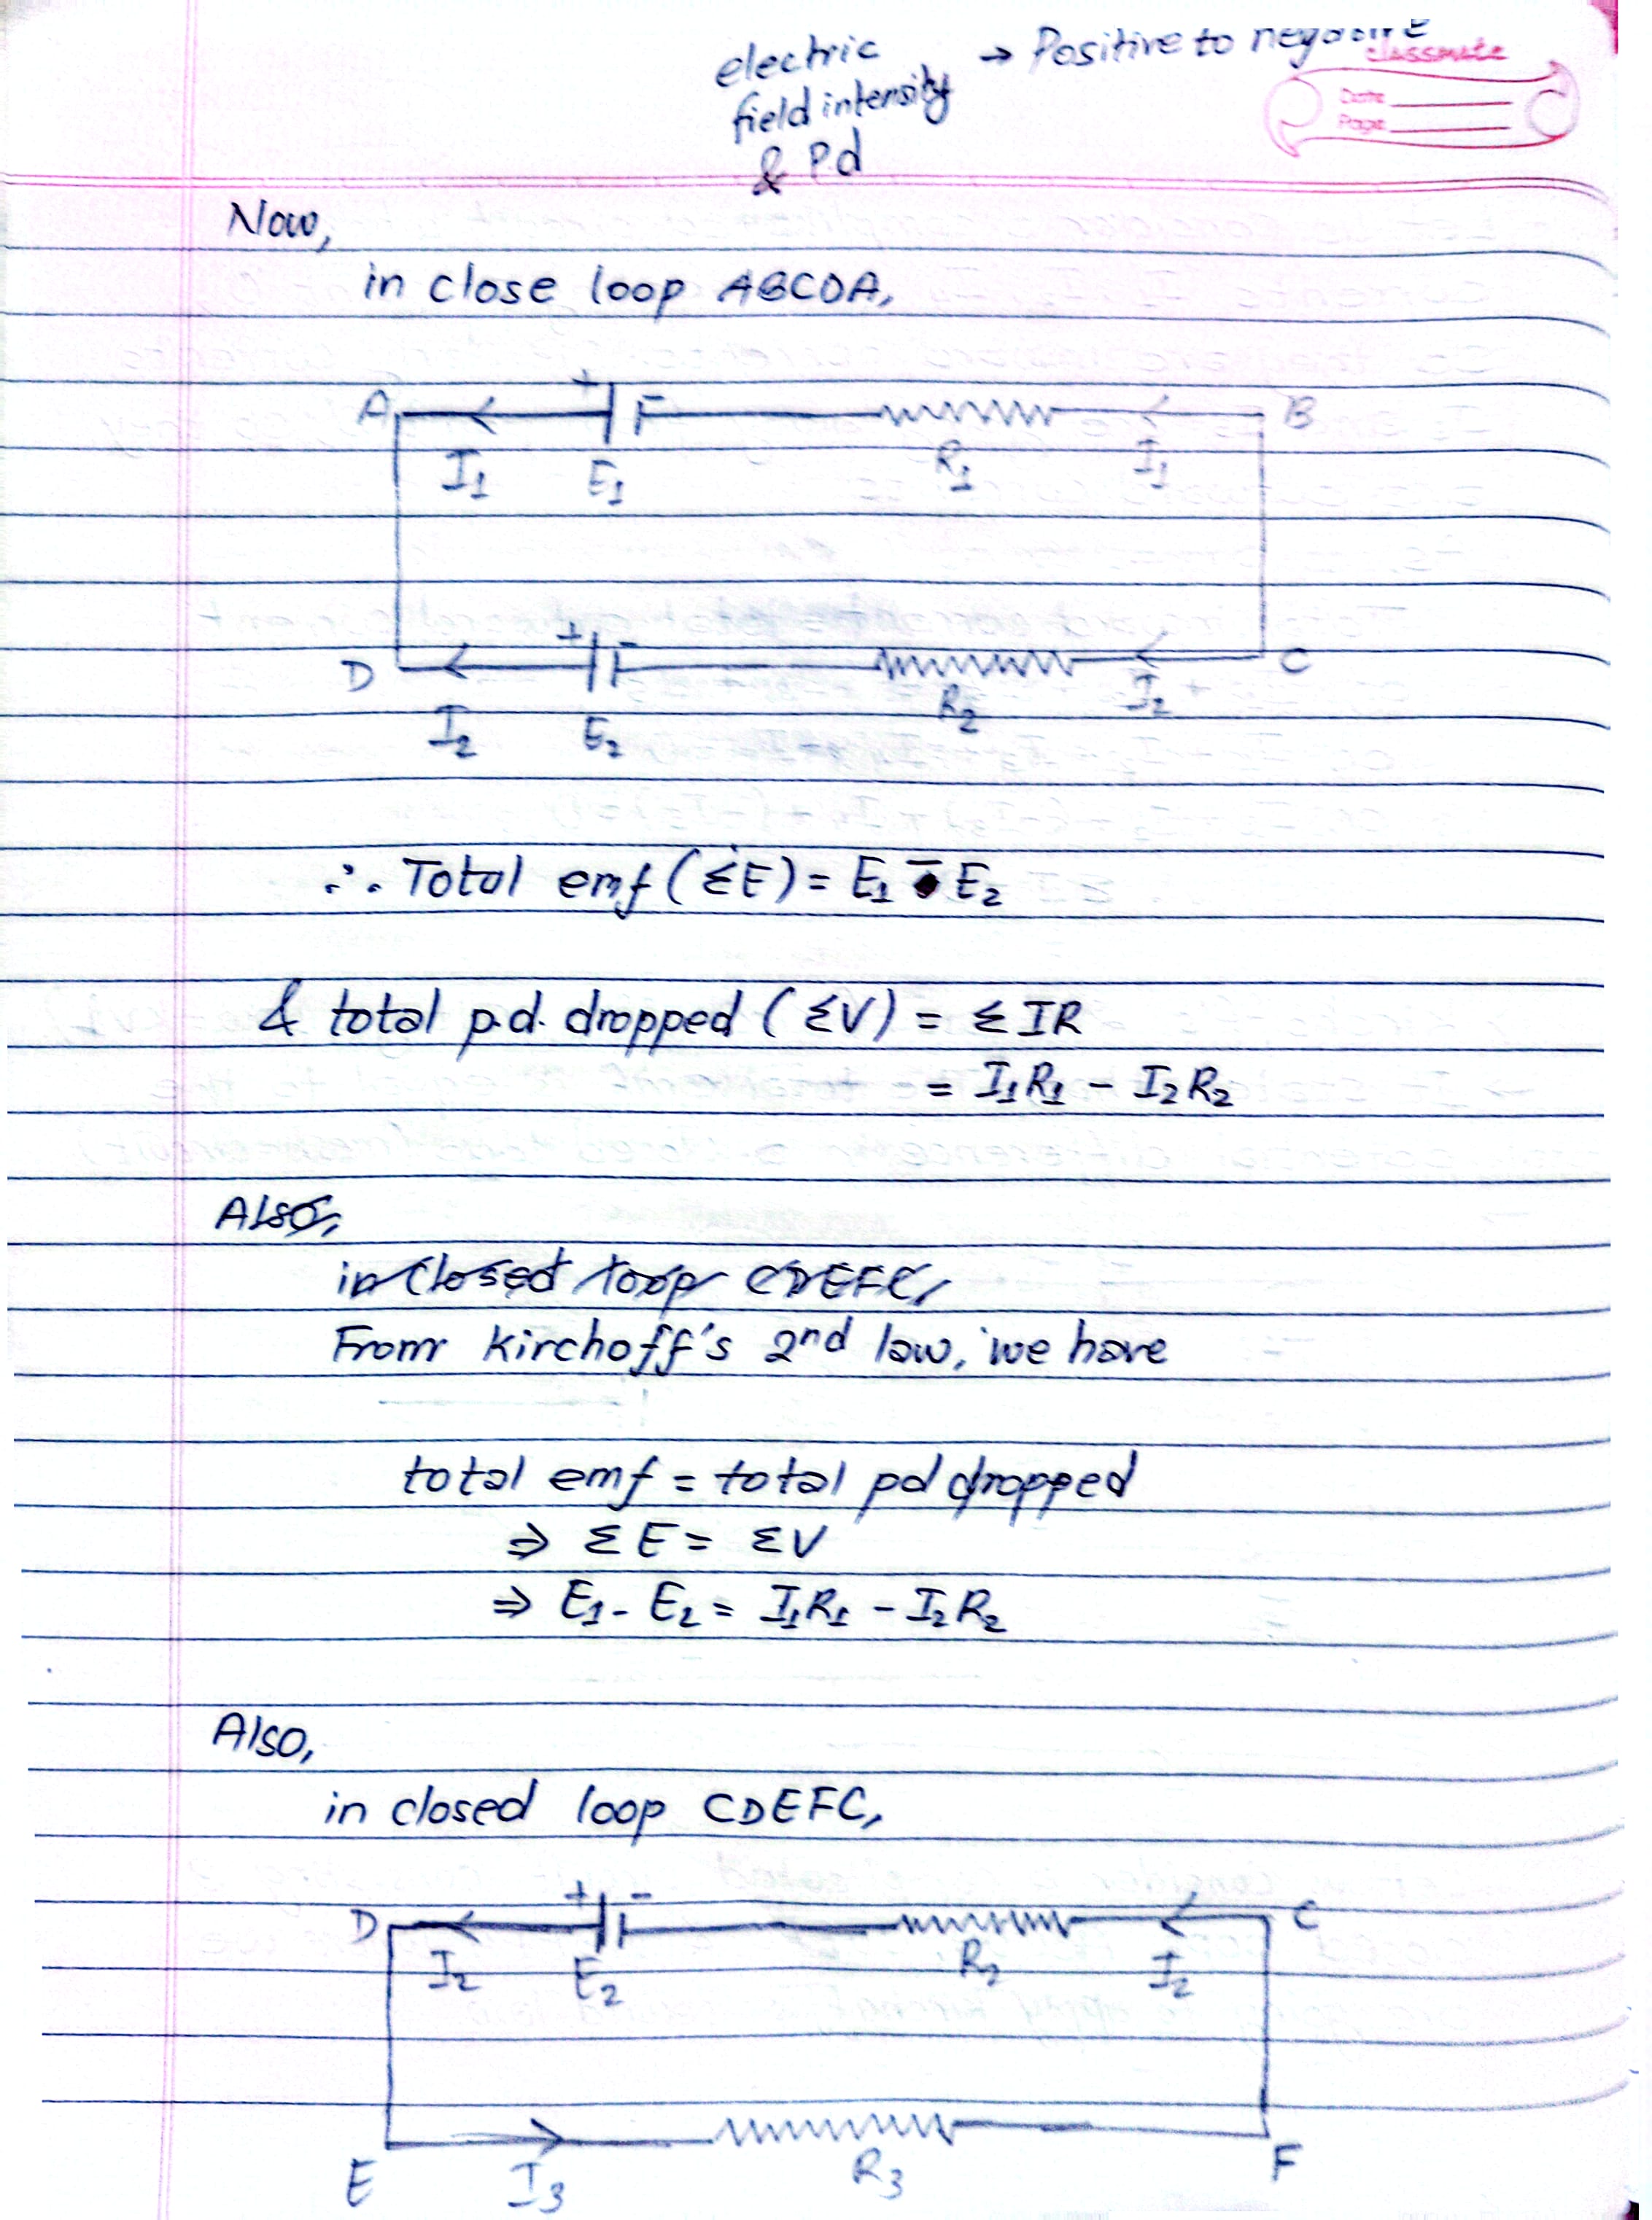 electric → Positive to negative
field intensity
& P.d
classmate
Date
Page
Now,
in close loop ABCDA,
A + - B
I₁ E₁ R₁ I₁
D + - C
I₂ E₂ R₂ I₂
∴ Total emf (ΣE) = E₁ - E₂
& total p.d. dropped (ΣV) = ΣIR
= I₁R₁ - I₂R₂
Also,
in closed loop CDEFC,
From Kirchoff's 2nd law, we have
total emf = total pd dropped
⇒ ΣE = ΣV
⇒ E₁ - E₂ = I₁R₁ - I₂R₂
Also,
in closed loop CDEFC,
D + - C
I₂ E₂ R₂ I₂
E I₃ R₃ F